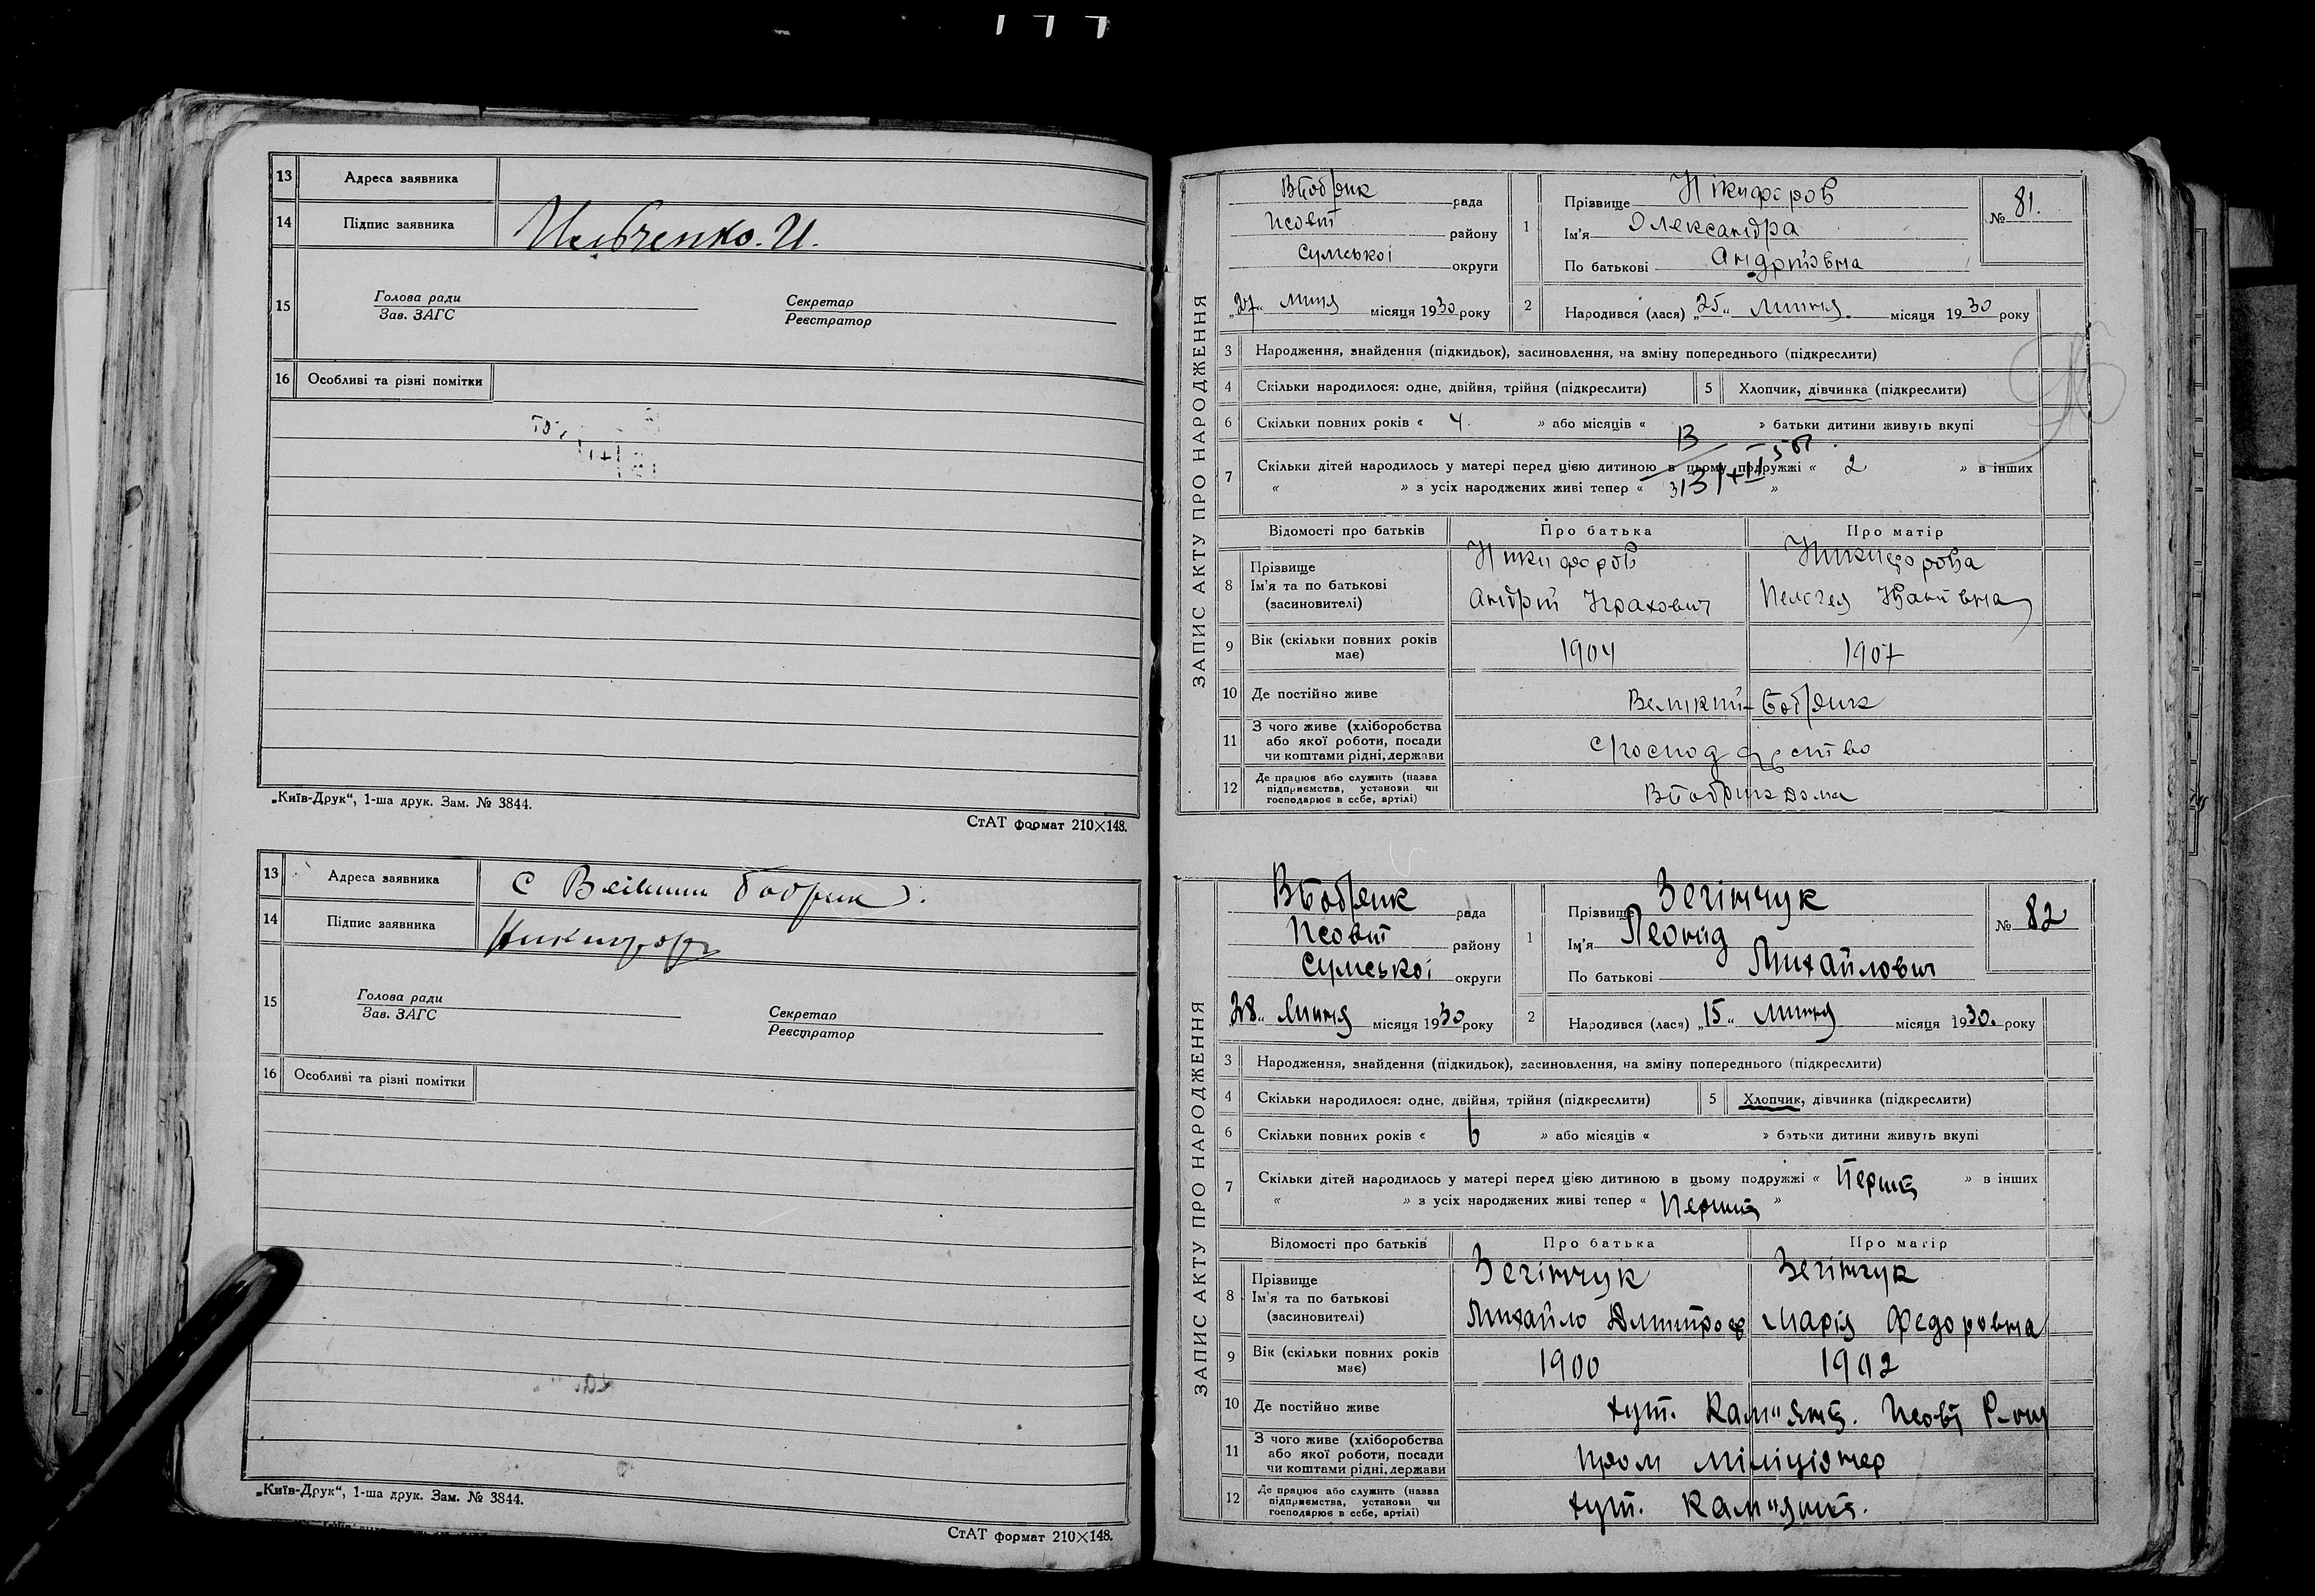 13 Адреса заявника
14 Підпис заявника
15 Голова ради Секретар
Зав. ЗАГС Реєстратор
16 Особливі та різні помітки
„Київ-Друк“, 1-ша друк. Зам. № 3844.
СтАТ формат 210×148.
13 Адреса заявника с
14 Підпис заявника
15 Голова ради Секретар
Зав. ЗАГС Реєстратор
16 Особливі та різні помітки
„Київ-Друк“, 1-ша друк. Зам. № 3844.
СтАТ формат 210×148.
ЗАПИС АКТУ ПРО НАРОДЖЕННЯ
ВБобрик рада
району
Сумської округи
„27“ місяця 1930 року
1 Прізвище Нікифоров
Ім'я Олександра
По батькові Андріївна
№ 81.
2 Народився (лася) „25“ Липня місяця 1930 року
3 Народження, знайдення (підкидьок), засиновлення, на зміну попереднього (підкреслити)
4 Скільки народилося: одне, двійня, трійня (підкреслити) 5 Хлопчик, дівчинка (підкреслити)
6 Скільки повних років « 4. » або місяців « » батьки дитини живуть вкупі
7 Скільки дітей народилось у матері перед цією дитиною в цьому подружжі « 2 » в інших
« » з усіх народжених живі тепер « 3 »
Відомості про батьків Про батька Про матір
8 Прізвище Никифоров Никифорова
Ім'я та по батькові
(засиновителі) Андрій Іванівна
9 Вік (скільки повних років має) 1904 1907
10 Де постійно живе Великий-Бобрик
11 З чого живе (хліборобства
або якої роботи, посади
чи коштами рідні, держави
12 Де працює або служить (назва
підприємства, установи чи
господарює в себе, артілі) ВБобрик дома
ЗАПИС АКТУ ПРО НАРОДЖЕННЯ
ВБобрик рада
району
Сумської округи
„28“ Липня місяця 1930 року
1 Прізвище Зегінчук
Ім'я Леонід
По батькові Михайлович
№ 82
2 Народився (лася) „15“ Липня місяця 1930. року
3 Народження, знайдення (підкидьок), засиновлення, на зміну попереднього (підкреслити)
4 Скільки народилося: одне, двійня, трійня (підкреслити) 5 Хлопчик, дівчинка (підкреслити)
6 Скільки повних років « 6 » або місяців « » батьки дитини живуть вкупі
7 Скільки дітей народилось у матері перед цією дитиною в цьому подружжі « » в інших
« » з усіх народжених живі тепер « »
Відомості про батьків Про батька Про матір
8 Прізвище Зегінчук Зегінчук
Ім'я та по батькові
(засиновителі) Михайло Марія Федоровна
9 Вік (скільки повних років має) 1900 1902
10 Де постійно живе хут.
11 З чого живе (хліборобства
або якої роботи, посади
чи коштами рідні, держави Пром міліціонер
12 Де працює або служить (назва
підприємства, установи чи
господарює в себе, артілі) хут.